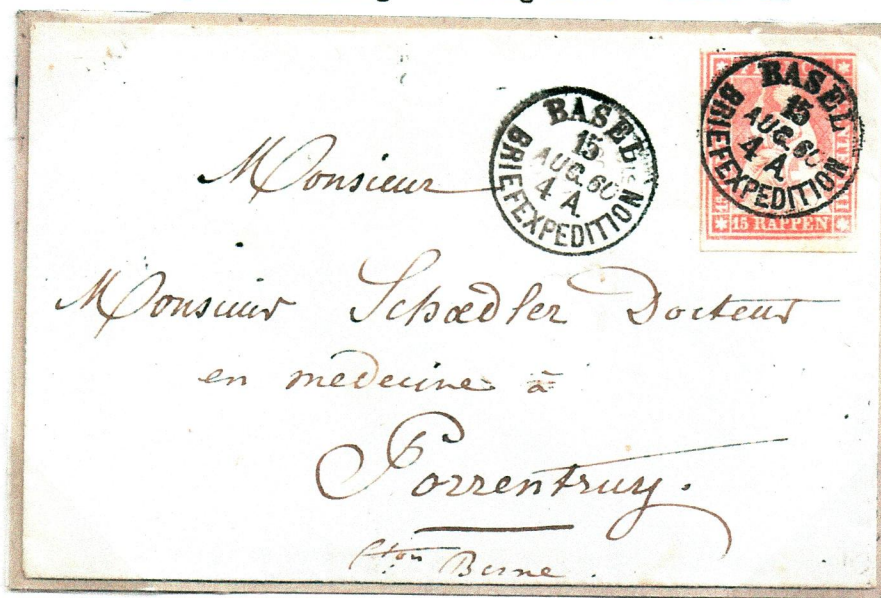 BASEL
15
AUG. 60
4 A.
BRIEFEXPEDITION
BASEL
15
AUG. 60
4 A.
BRIEFEXPEDITION
15 RAPPEN
Monsieur
Monsieur Schædler Docteur
en medecine à
Porrentruy.
Cton Berne.